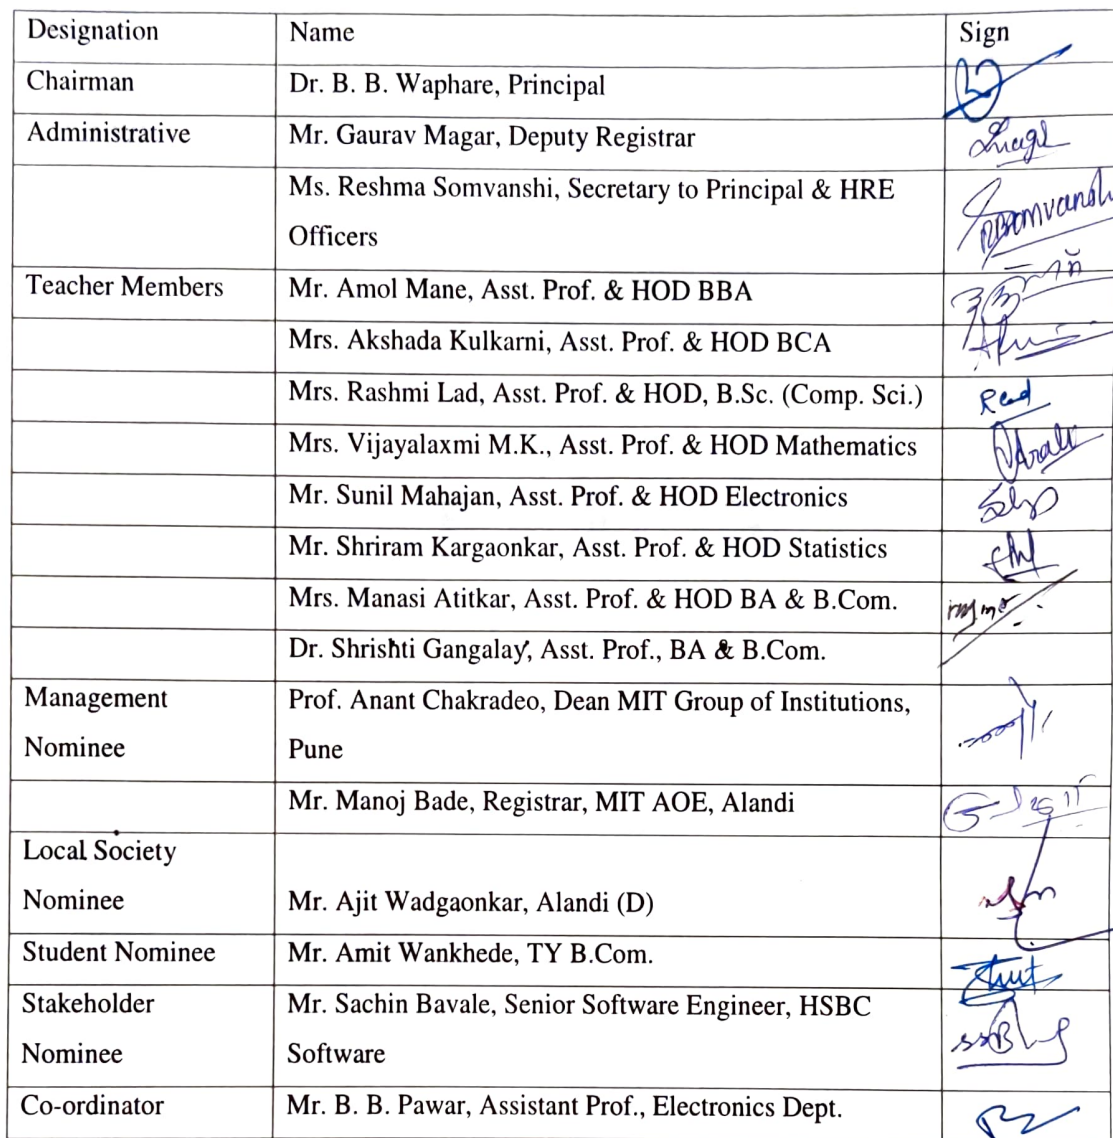 Designation Name Sign
Chairman Dr. B. B. Waphare, Principal
Administrative Mr. Gaurav Magar, Deputy Registrar
Ms. Reshma Somvanshi, Secretary to Principal & HRE
Officers
Teacher Members Mr. Amol Mane, Asst. Prof. & HOD BBA
Mrs. Akshada Kulkarni, Asst. Prof. & HOD BCA
Mrs. Rashmi Lad, Asst. Prof. & HOD, B.Sc. (Comp. Sci.)
Mrs. Vijayalaxmi M.K., Asst. Prof. & HOD Mathematics
Mr. Sunil Mahajan, Asst. Prof. & HOD Electronics
Mr. Shriram Kargaonkar, Asst. Prof. & HOD Statistics
Mrs. Manasi Atitkar, Asst. Prof. & HOD BA & B.Com.
Dr. Shrishti Gangalay, Asst. Prof., BA & B.Com.
Management Prof. Anant Chakradeo, Dean MIT Group of Institutions,
Nominee Pune
Mr. Manoj Bade, Registrar, MIT AOE, Alandi
Local Society
Nominee Mr. Ajit Wadgaonkar, Alandi (D)
Student Nominee Mr. Amit Wankhede, TY B.Com.
Stakeholder Mr. Sachin Bavale, Senior Software Engineer, HSBC
Nominee Software
Co-ordinator Mr. B. B. Pawar, Assistant Prof., Electronics Dept.